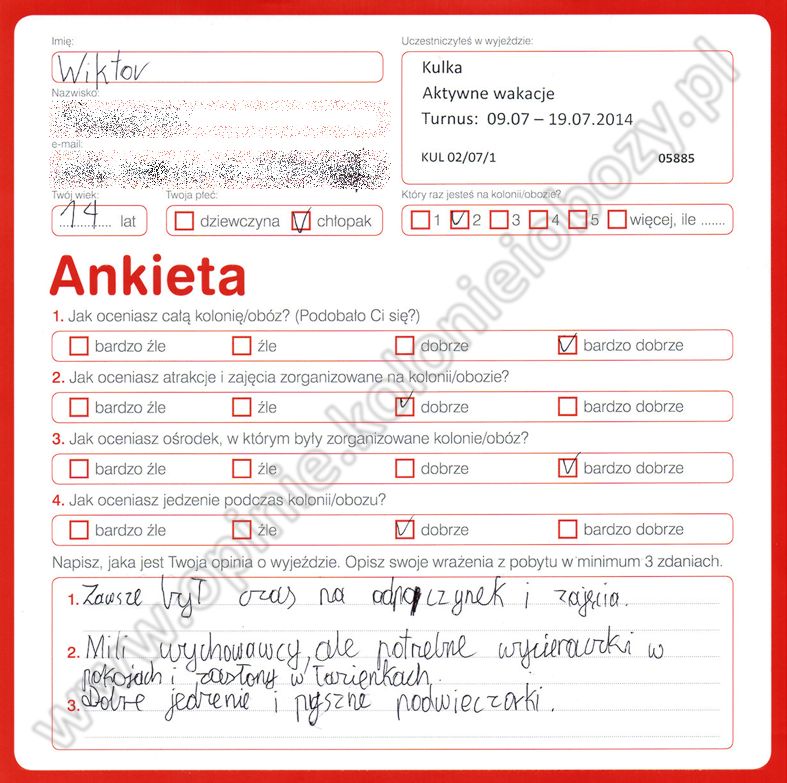 Imię:
Uczestniczyłeś w wyjeździe:
Wiktor
Kulka
Nazwisko:
Aktywne wakacje
Turnus: 09.07 – 19.07.2014
e-mail:
KUL 02/07/1 05885
Twój wiek:
Twoja płeć:
Który raz jesteś na kolonii/obozie?
14 lat
dziewczyna chłopak
1 2 3 4 5 więcej, ile .......
Ankieta
1. Jak oceniasz całą kolonię/obóz? (Podobało Ci się?)
bardzo źle źle dobrze bardzo dobrze
2. Jak oceniasz atrakcje i zajęcia zorganizowane na kolonii/obozie?
bardzo źle źle dobrze bardzo dobrze
3. Jak oceniasz ośrodek, w którym były zorganizowane kolonie/obóz?
bardzo źle źle dobrze bardzo dobrze
4. Jak oceniasz jedzenie podczas kolonii/obozu?
bardzo źle źle dobrze bardzo dobrze
Napisz, jaka jest Twoja opinia o wyjeździe. Opisz swoje wrażenia z pobytu w minimum 3 zdaniach.
1. Zawsze był czas na odpoczynek i zajęcia.
2. Mili wychowawcy, ale potrebne wycieraczki w
pokojach i zasłony w łazienkach.
3. Dobre jedzenie i pyszne podwieczorki.
www.opinie.kolonieiobozy.pl